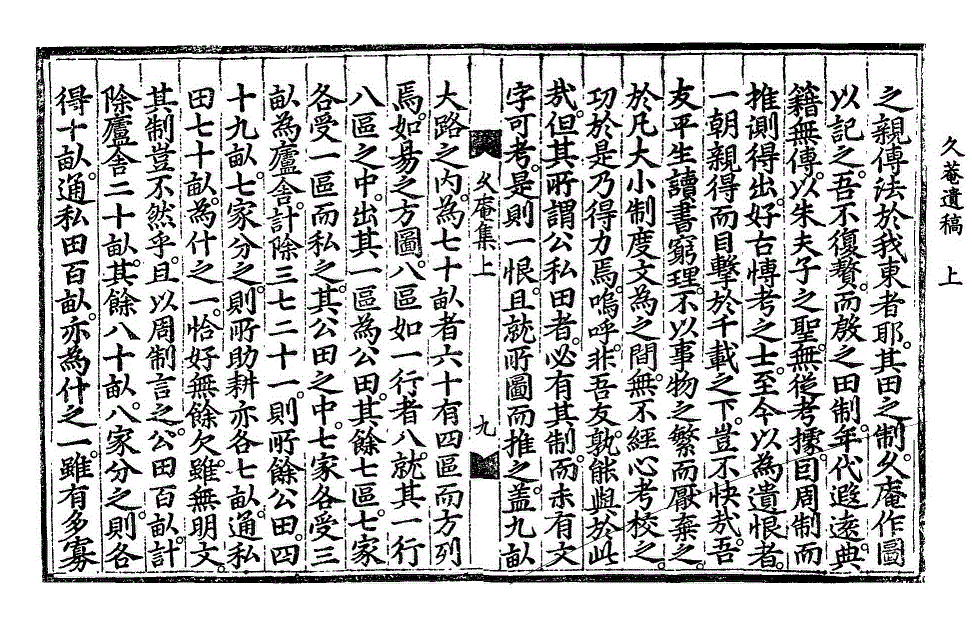 久菴遺稿 上
之親傳法於我東者耶其田之制久庵作圖
以記之吾不復贅而殷之田制年代遐遠典
籍無傳以朱夫子之聖無從考據因周制而
推測得出好古博考之士至今以為遺恨者
一朝親得而目擊於千載之下豈不快哉吾
友平生讀書窮理不以事物之繁而厭棄之
於凡大小制度文為之間無不經心考校之
功於是乃得力焉嗚呼非吾友孰能與於此
哉但其所謂公私田者必有其制而未有文
字可考是則一恨且就所圖而推之盖九畝
久庵集上
九
大路之內為七十畝者六十有四區而方列
焉如易之方圖八區如一行者八就其一行
八區之中出其一區為公田其餘七區七家
各受一區而私之其公田之中七家各受三
畝為廬舍計除三七二十一則所餘公田四
十九畝七家分之則所助耕亦各七畝通私
田七十畝為什之一恰好無餘欠雖無明文
其制豈不然乎且以周制言之公田百畝計
除廬舍二十畝其餘八十畝八家分之則各
得十畝通私田百畝亦為什之一雖有多寡